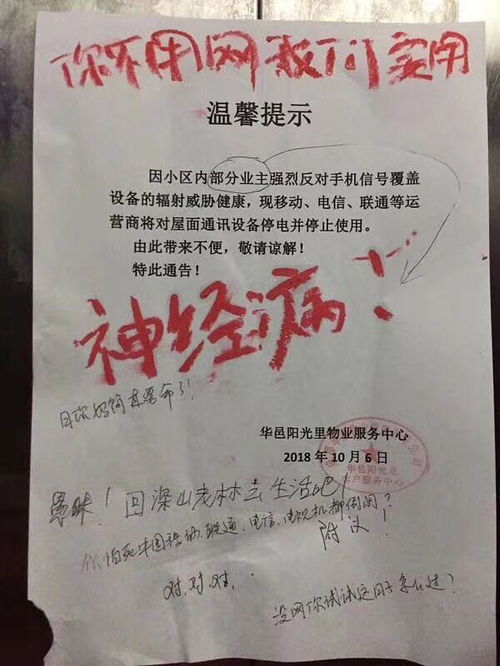 你不用网我们实用
温馨提示
因小区内部分业主强烈反对手机信号覆盖
设备的辐射威胁健康，现移动、电信、联通等运
营商将对屋面通讯设备停电并停止使用。
由此带来不便，敬请谅解！
特此通告！
神经病！
华邑阳光里物业服务中心
2018年10月6日
华邑阳光里
客户服务中心
愚昧！回深山老林去生活吧！
你怕死中国移动、联通、电信、电视机都倒闭？
附议！
对、对、对、
没网你试试这日子怎么过？